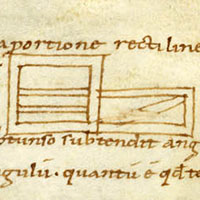 a portione rectiline
tunso subtendit ang
gulū · quantū ē qd te